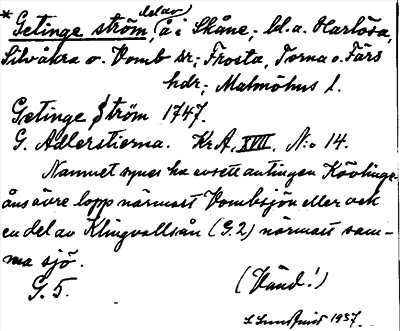 * Getinge ström, del av å i Skåne; bl.a. Harlösa,
Silvåkra o. Vomb sn; Frosta, Torna o. Färs
hdr; Malmöhus l.
Getinge Ström 1747.
G. Adlerstierna. Kr.A, XVII, N:o 14.
Namnet synes ha avsett antingen Kävlinge-
åns övre lopp närmast Vombsjön eller ock
en del av Klingvallsån (G.2) närmast sam-
ma sjö.
G. 5. (Vänd!)
S. Lundquist 1937.